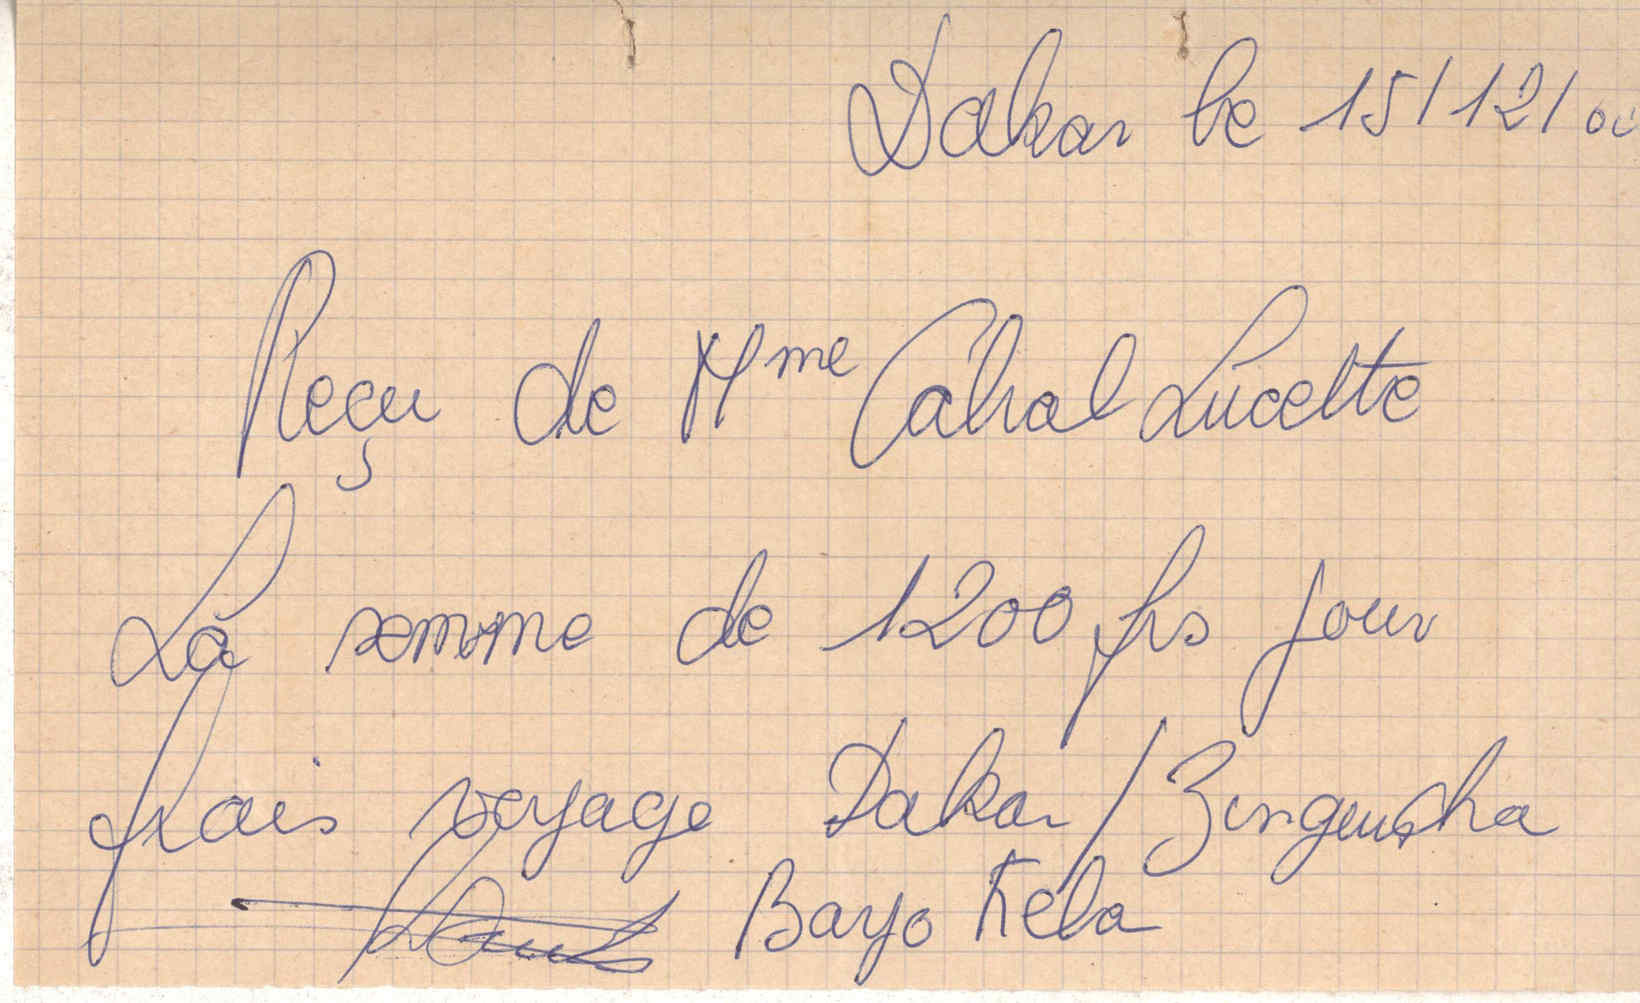 Dakar le 15/12/60
Reçu de Mme Cabral Lucette
La somme de 1200 frs pour
frais voyage Dakar/Zinguicha
Bayo Kéba